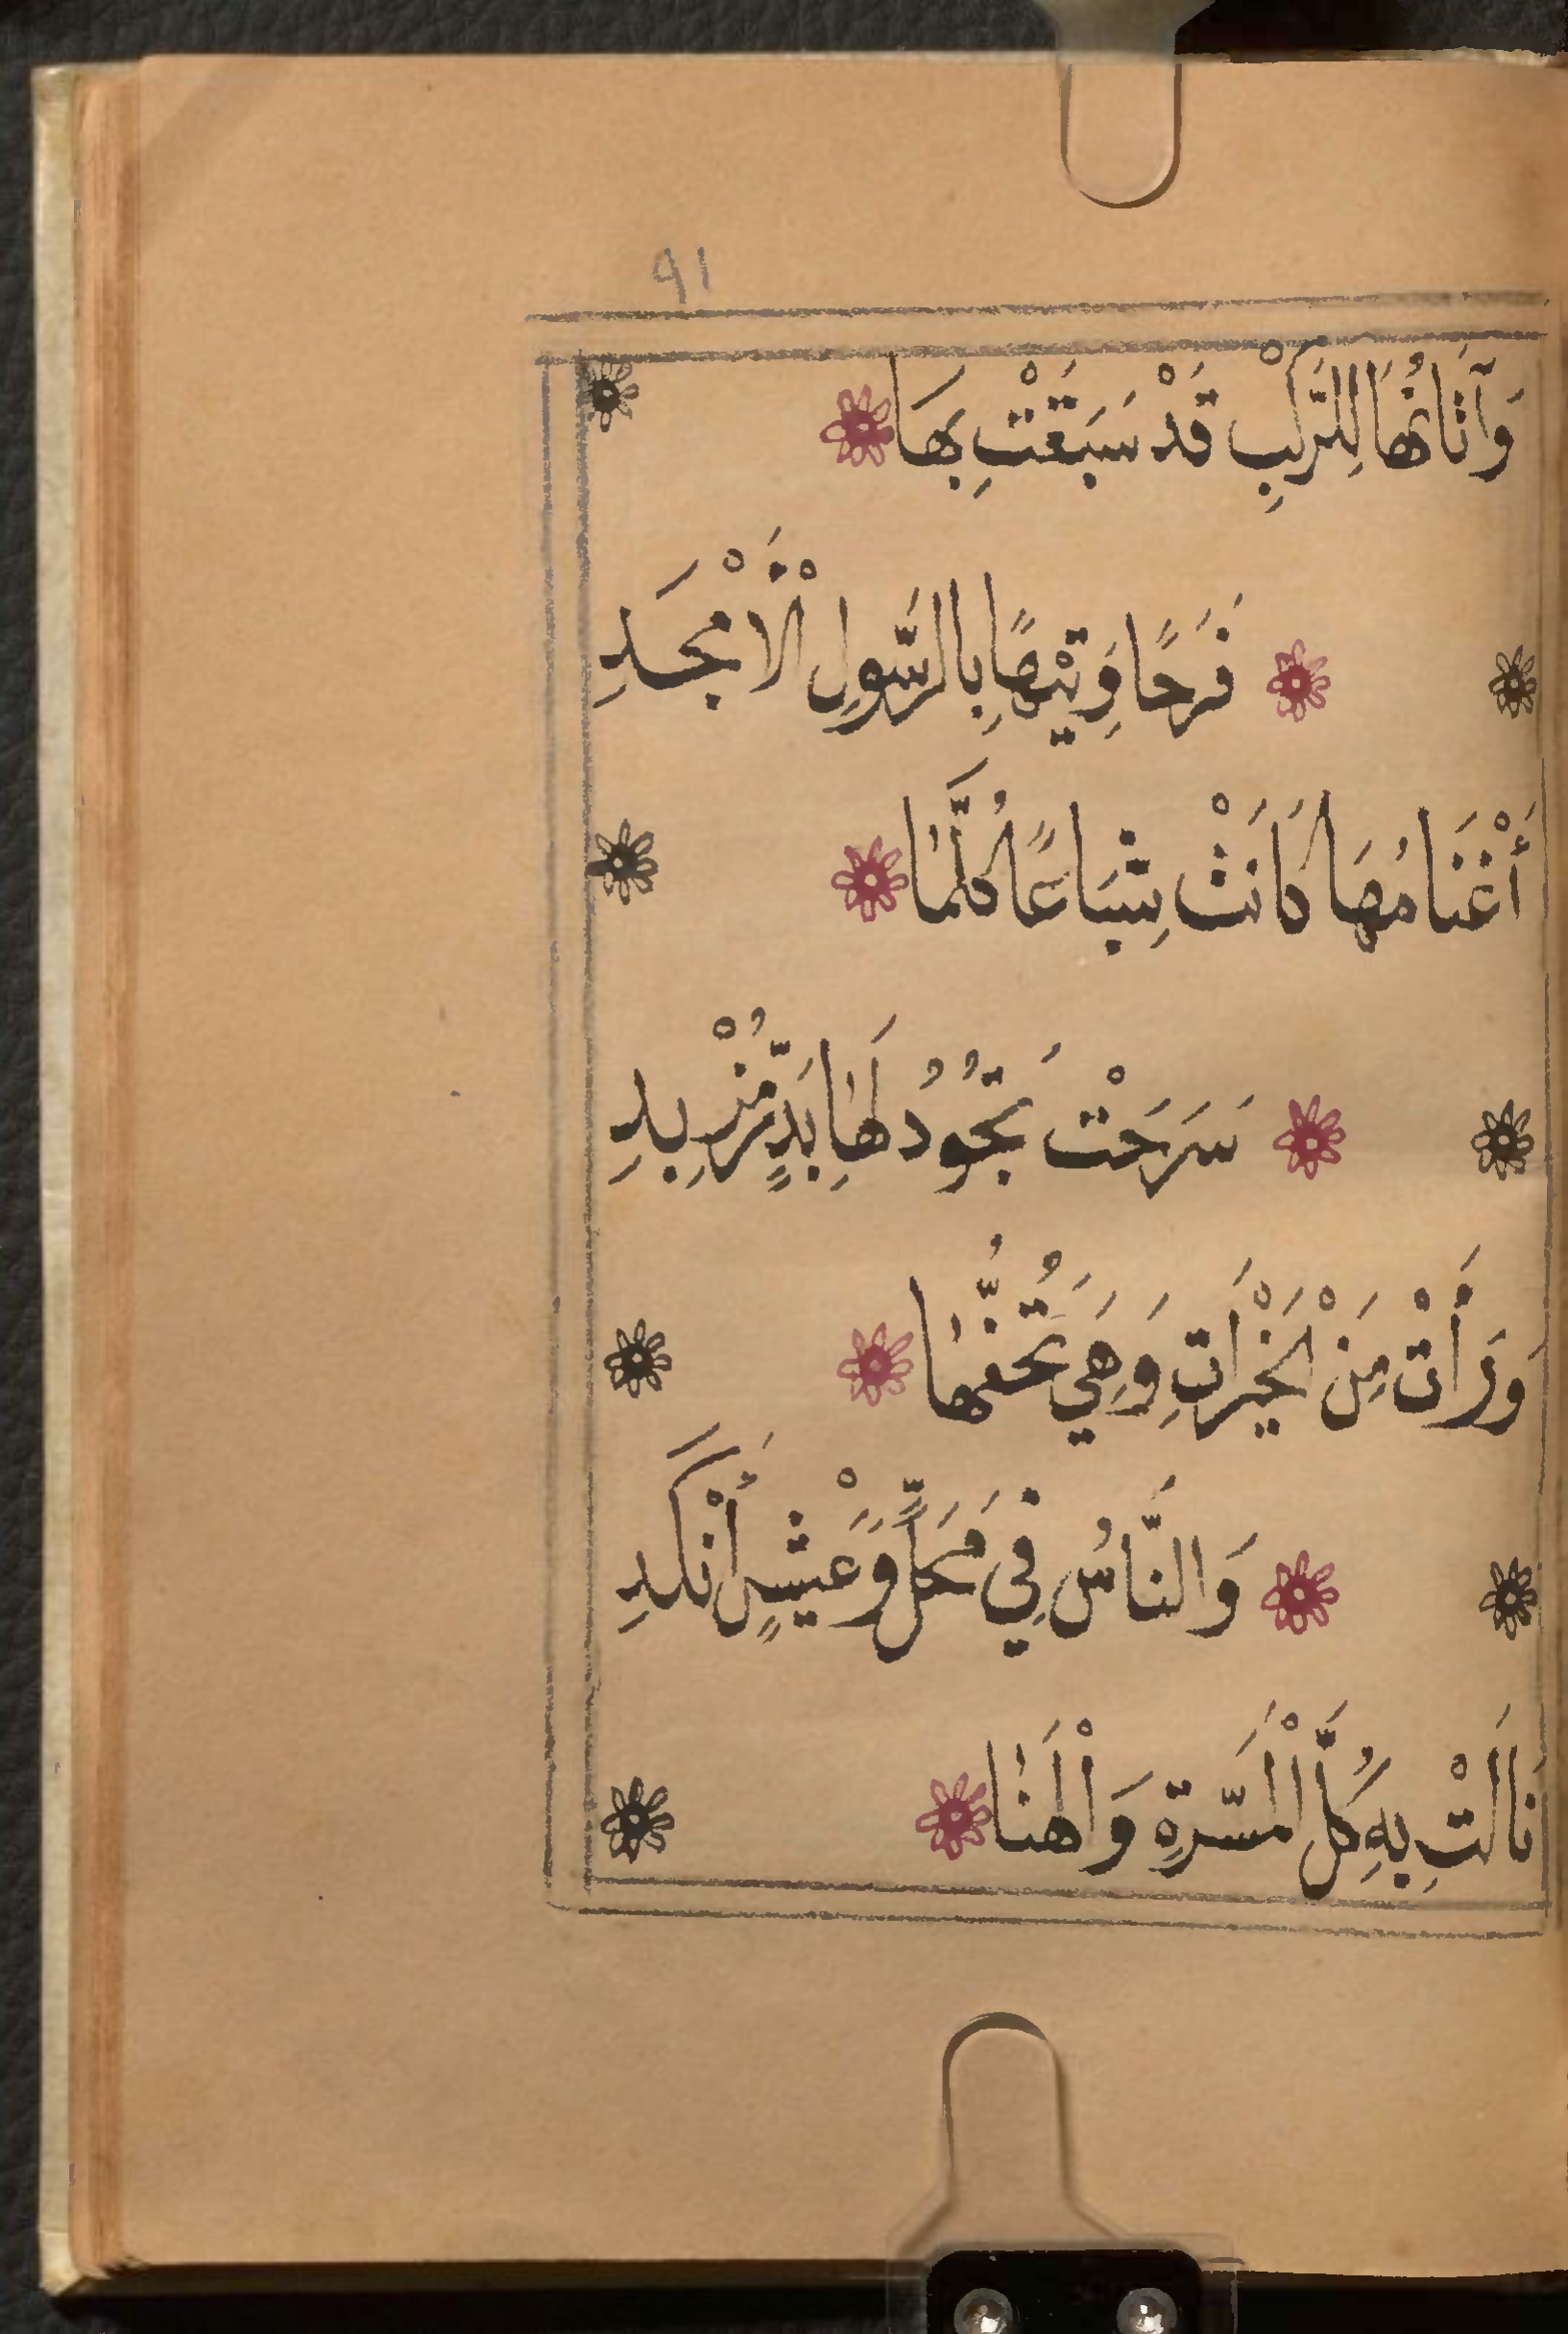 91
وَآتَانُهَا لِلرَّكْبِ قَدْ سَبَقَتْ بِهَا
فَرَحًا وَتِيْهًا بِالرَّسُولِ الْأَمْجَدِ
أَغْنَامُهَا كَانَتْ شِبَاعًا كُلَّمَا
سَرَحَتْ تَجُوُدُ لَهَا بَدٍرٍّ مُزْبِدِ
وَرَأَتْ مِنَ الْخَيْرَاتِ وَهِيَ تُحُفُّهَا
وَالنَّاسُ فِي مَحَلٍّ وَعَيْشٍ أَنْكَدِ
نَالَتْ بِهِ كُلَّ الْمَسَّرَةِ وَالْهَنَا